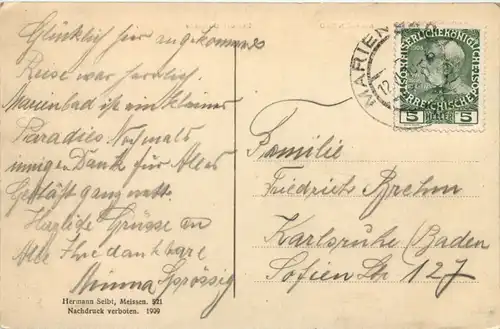 Glücklich hier angekommen
Reise war herrlich.
Marienbad ist ein kleines
Paradies. Nochmals
innigen Dank für Alles
Geschäft ganz nett.
Herzliche Grüsse an
Alle Ihre dankbare
Minna Sprössig
Hermann Seibt, Meissen. 821
Nachdruck verboten. 1909
MARIENBAD
12
KAISERLICHE KÖNIGLICHE
ÖSTERREICHISCHE
5 HELLER 5
Familie
Friedrich Brehm
Karlsruhe (Baden
Sofien Str 127